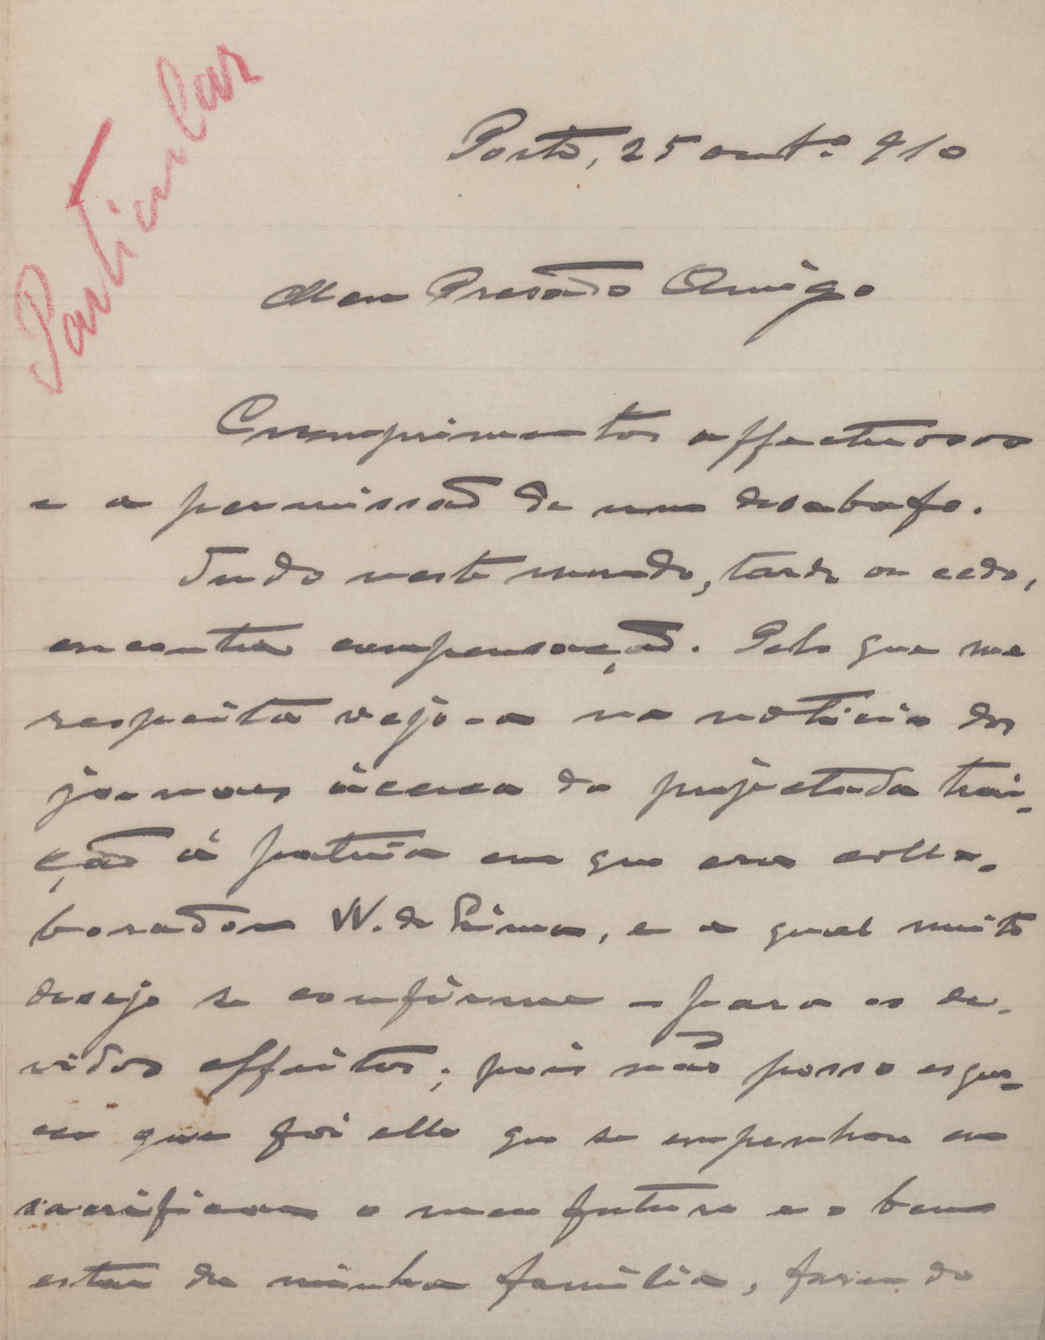 Particular
Porto, 25 out.º 910
Meu Presado Amigo
Cumprimentos affectuosos
e a permissão de um desabafo.
Tudo neste mundo, tarde ou cedo,
encontra compensação. Pelo que me
respeita vejo-a na noticia dos
jornaes ácerca da projectada trai-
ção á patria em que era colla-
borador W. de Lima, e a qual muito
desejo se confirme - para os de-
vidos effeitos; pois não posso esque-
cer que foi elle que se empenhou em
sacrificar o meu futuro e o bem
estar da minha familia, fazendo